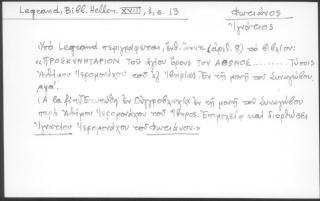 Legrand, Bibl. Hellen. XVIII, 1, σ. 13
Φωτιάνος
Ἰγνάτιος
Ὑπὸ Legrand περιγράφεται, (ἀριθ. 8) τὸ βιβλίον:
«ΠΡΟΣΚΥΝΗΤΑΡΙΟΝ τοῦ ἁγίου ὄρους τοῦ ΑΘΩΝΟΣ......... Τύποις
Ἀνθίμου Ἱερομονάχου τοῦ ἐξ Ἰβηρίας. Ἐν τῇ μονῇ τοῦ Συναγώβου,
αψα'.
ἐν Οὐγγροβλαχίᾳ ἐν τῇ μονῇ τοῦ Συναγώβου
παρὰ Ἀνθίμου Ἱερομονάχου τοῦ Ἴβηρος. Ἐπιμελείᾳ καὶ διορθώσει
Ἰγνατίου Ἱερομονάχου τοῦ Φωτιάνου.»